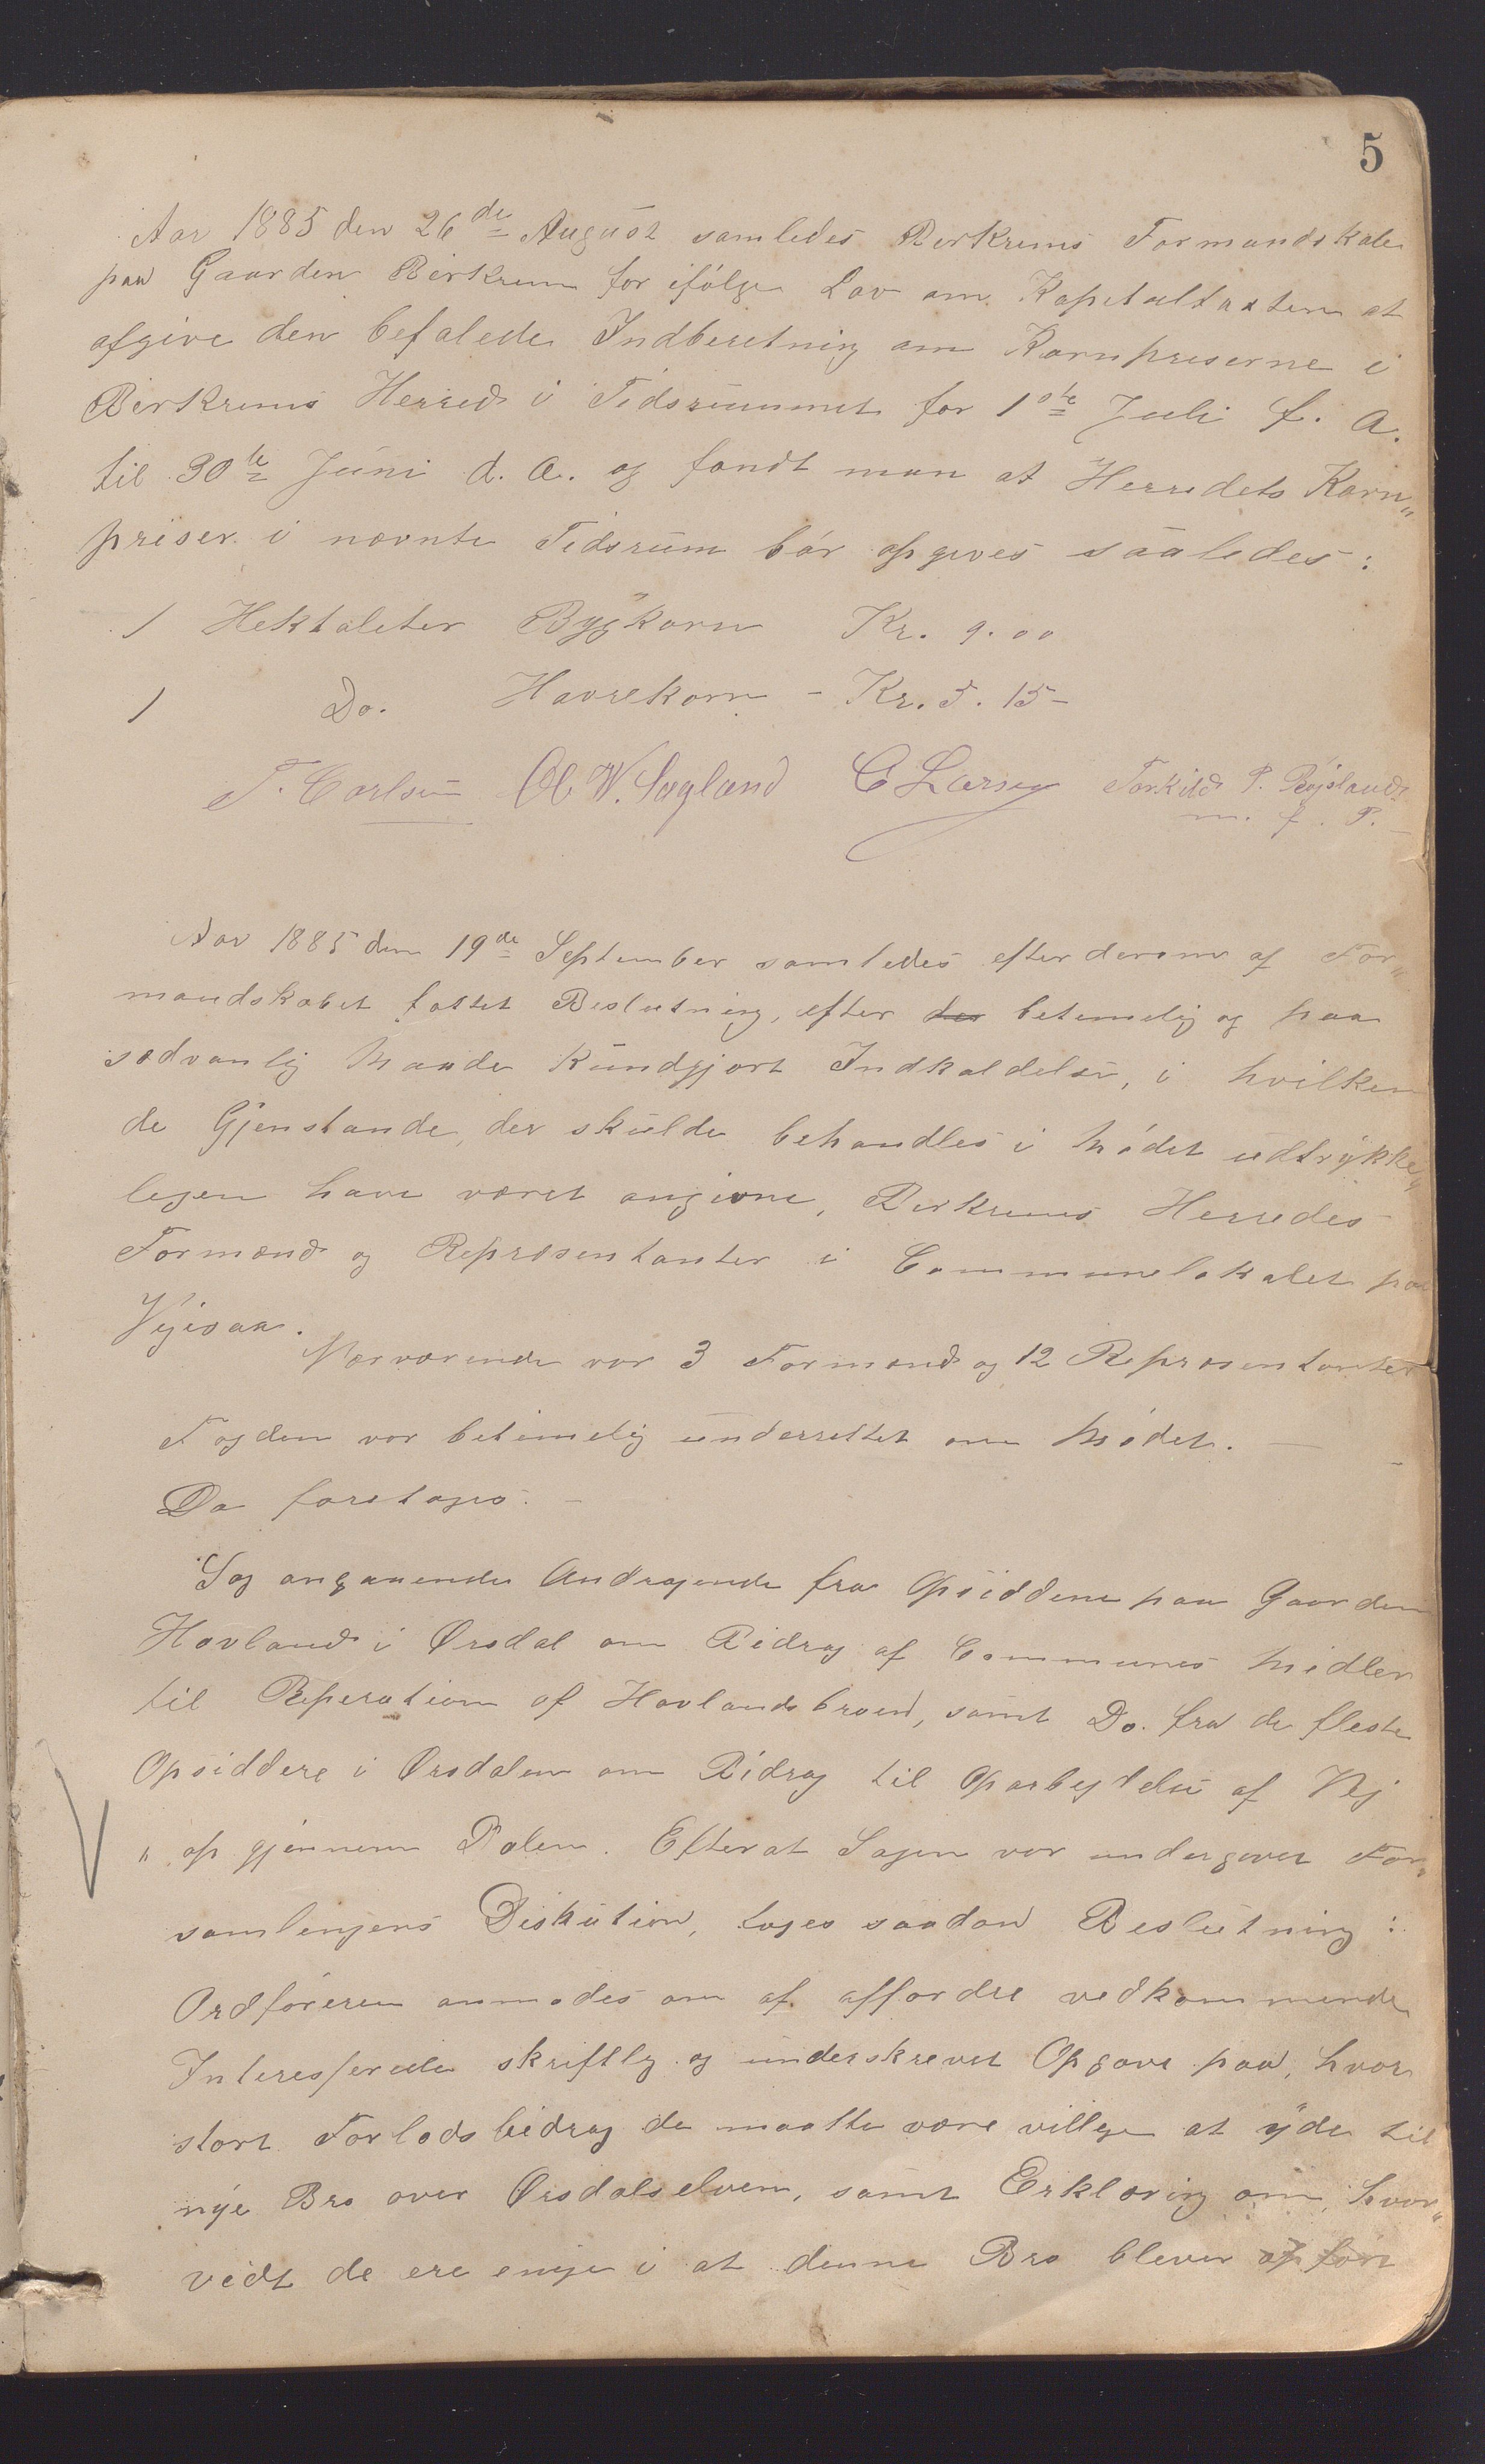 5
Aar 1885 den 26de August samledes Birkrems Formandskab
paa Gaarden Birkrem for ifølge Lov om Kapitaltaxten at
afgive den befalede Indberetning om Kornpriserne i
Birkrems Herred i Tidsrummet for 1ste Juli f. A.
til 30te Juni d. A. og fandt man at Herredets Korn„
priser i nævnte Tidsrum bør opgives saaledes:
1 Hektoliter Bygkorn Kr. 9.00
1 Do. Havrekorn - Kr. 5.15 -
T. Carlsen O W. Sagland C Larsen Torkild P. Røjsland
m. f. P.
Aar 1885 den 19de September samledes efter derom af For„
mandskabet fattet Beslutning, efter der betimelig og paa
sædvanlig Maade kundgjort Indkaldelse, i hvilken
de Gjenstande, der skulde behandles i Mødet udtrykke„
ligen have været angivne, Birkrems Herredes
Formænd og Repræsentanter i Communelokalet paa
Vigesaa.
Nærværende var 3 Formænd og 12 Repræsentanter
Fogden var betimelig underrettet om Mødet. —
Da foretoges. -
Sag angaaende Andragende fra Opsiddene paa Gaarden
Hovland i Ørsdal om Bidrag af Communes Midler
til Reperation af Hovlandsbroen, samt Do. fra de fleste
Opsiddere i Ørsdalen om Bidrag til Oparbejdelse af Vej
„ op gjennem Dalen. Efterat Sagen var undergivet For„
samlingens Diskution, toges saadan Beslutning:
Ordføreren anmodes om af affordre vedkommende
Interesserede skriftlig og underskrevet Opgave paa, hvor
stort Forlodsbidrag de maatte være villige at yde til
nye Bro over Ørsdalselven, samt Erklæring om, hvor„
vidt de ere enige i at denne Bro bliver opført